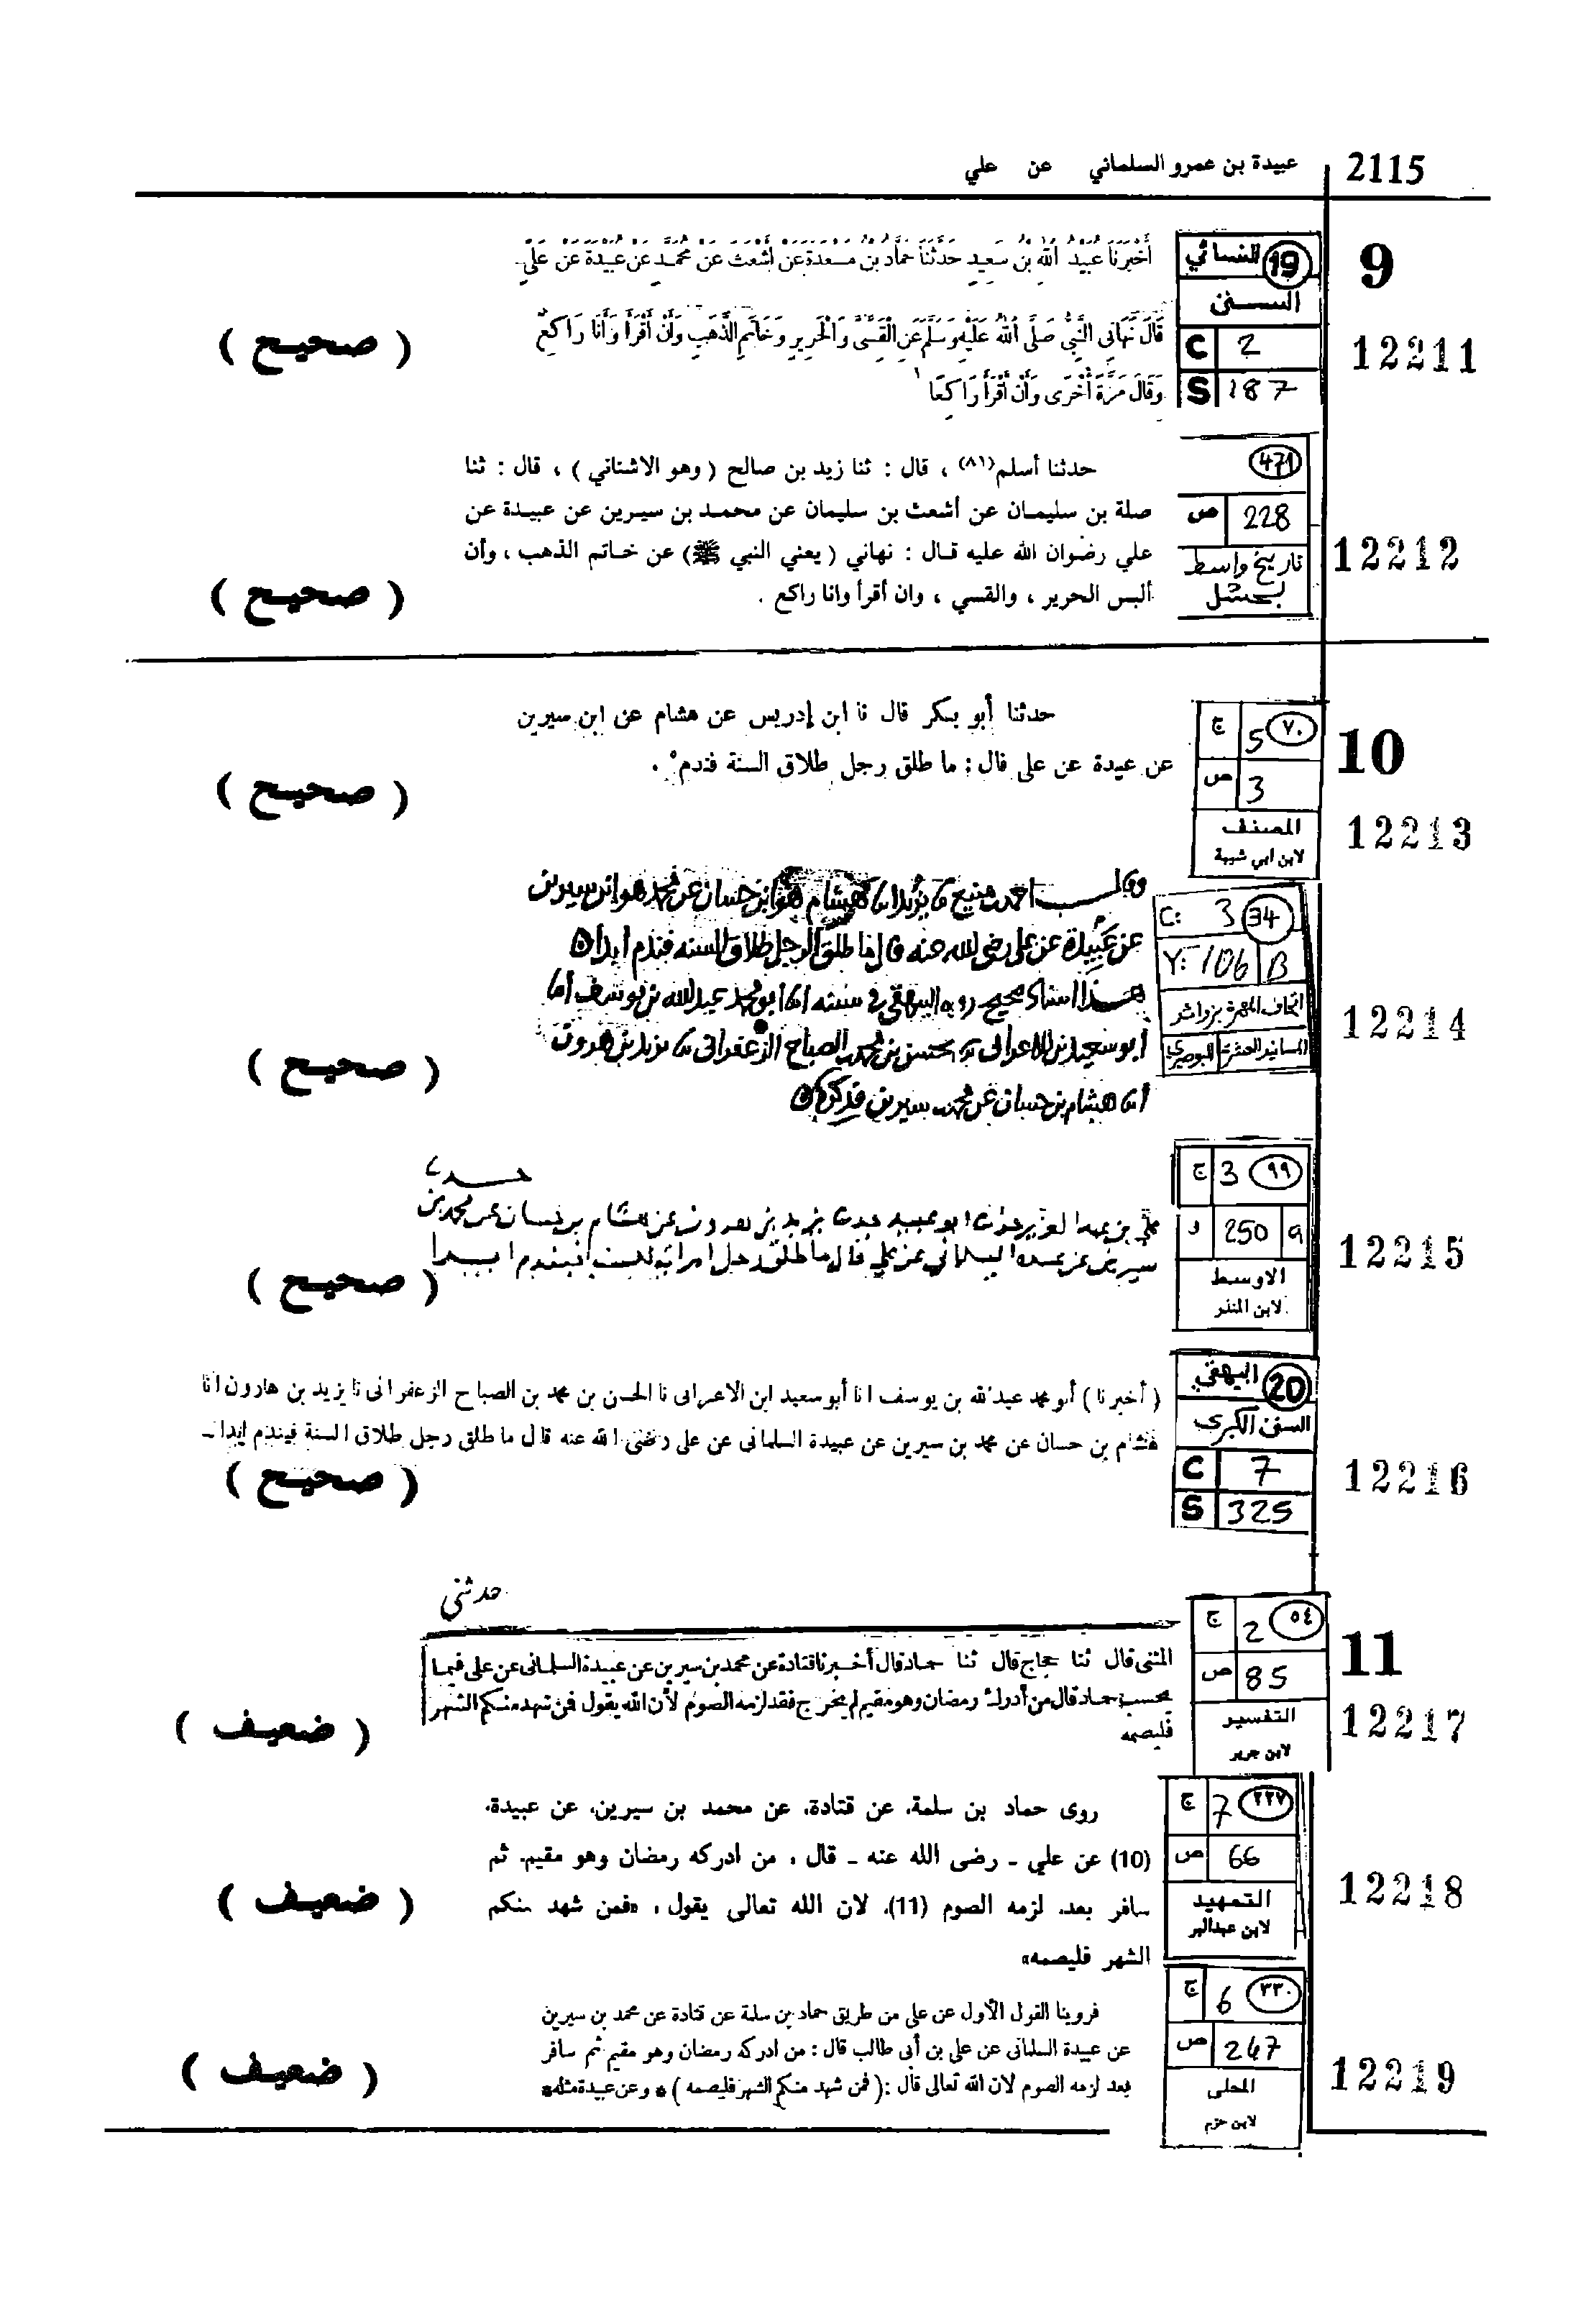 2115
عبيدة بن عمرو السلماني عن علي
9
النسائي 19
السنن
C 2
S 187
12211
أَخْبَرَنَا عُبَيْدُ اللَّهِ بْنُ سَعِيدٍ حَدَّثَنَا حَمَّادُ بْنُ مَسْعَدَةَ عَنْ أَشْعَثَ عَنْ مُحَمَّدٍ عَنْ عَبِيدَةَ عَنْ عَلِيٍّ
قَالَ نَهَانِي النَّبِيُّ صَلَّى اللَّهُ عَلَيْهِ وَسَلَّمَ عَنِ الْقَسِّيِّ وَالْحَرِيرِ وَخَاتَمِ الذَّهَبِ وَأَنْ أَقْرَأَ وَأَنَا رَاكِعٌ
وَقَالَ مَرَّةً أُخْرَى وَأَنْ أَقْرَأَ رَاكِعًا
( صحيح )
471
ص 228
تاريخ واسط
لبحشل
12212
حدثنا أسلم(٨٦) ، قال : ثنا زيد بن صالح ( وهو الاشناني ) ، قال : ثنا
صلة بن سليمان عن أشعث بن سليمان عن محمد بن سيرين عن عبيدة عن
علي رضوان الله عليه قال : نهاني ( يعني النبي ﷺ) عن خاتم الذهب ، وأن
ألبس الحرير ، والقسي ، وان أقرأ وانا راكع .
( صحيح )
10
٧٠
ج 5
ص 3
المصنف
لابن ابي شيبة
12213
حدثنا أبو بكر قال نا ابن إدريس عن هشام عن ابن سيرين
عن عبيدة عن على قال : ما طلق رجل طلاق السنة فندم .
( صحيح )
34
C: 3
Y: 106 B
اتحاف المهرة بزوائد
المسانيد العشرة للبوصيري
12214
وقال احمد بن منيع يزيد هشام هو ابن حسان عن محمد هو ابن سيرين
عن عبيدة عن على رضى الله عنه قال ما طلق الرجل طلاق السنه فندم ابدا
هذا اسناد صحيح رواه البيهقى في سننه ابو محمد عبد الله بن يوسف أنا
ابو سعيد بن الاعرابى حسن بن محمد الصباح الزعفرانى يزيد بن هرون
هشام بن حسان عن محمد سيرين فذكره
( صحيح )
٩٩
ج 3
و 250 a
الاوسط
لابن المنذر
12215
حدثنا
علي بن عبد العزيز حدثنا ابو عبيد حدثنا يزيد بن هرون عن هشام بن حسان عن محمد بن
سيرين عن عبيدة السلماني عن علي قال ما طلق رجل امراته للسنة فيندم ابدا
( صحيح )
البيهقي 20
السنن الكبرى
C 7
S 325
12216
( أخبرنا ) أبو محمد عبد الله بن يوسف انا أبو سعيد ابن الاعرابى نا الحسن بن محمد بن الصباح الزعفرانى نا يزيد بن هارون انا
هشام بن حسان عن محمد بن سيرين عن عبيدة السلمانى عن على رضى الله عنه قال ما طلق رجل طلاق السنة فيندم ابدا ـ
( صحيح )
11
٥٤
ج 2
ص 85
التفسير
لابن جرير
12217
حدثني
المثنى قال ثنا حجاج قال ثنا حماد قال أخبرنا قتادة عن محمد بن سيرين عن عبيدة السلمانى عن على فيما
يحسب حماد قال من أدرك رمضان وهو مقيم لم يخرج فقد لزمه الصوم لأن الله يقول فمن شهد منكم الشهر
فليصمه
( ضعيف )
٢٢٧
ج 7
ص 66
التمهيد
لابن عبدالبر
12218
روى حماد بن سلمة، عن قتادة، عن محمد بن سيرين، عن عبيدة،
(10) عن علي ـ رضى الله عنه ـ قال ، من ادركه رمضان وهو مقيم، ثم
سافر بعد، لزمه الصوم (11)، لان الله تعالى يقول ، «فمن شهد منكم
الشهر فليصمه»
( ضعيف )
٣٣٠
ج 6
ص 247
المحلى
لابن حزم
12219
فروينا القول الأول عن على من طريق حماد بن سلمة عن قتادة عن محمد بن سيرين
عن عبيدة السلمانى عن على بن أبى طالب قال : من ادركه رمضان وهو مقيم ثم سافر
بعد لزمه الصوم لان الله تعالى قال : ( فمن شهد منكم الشهر فليصمه ) * وعن عبيدة مثله *
( ضعيف )